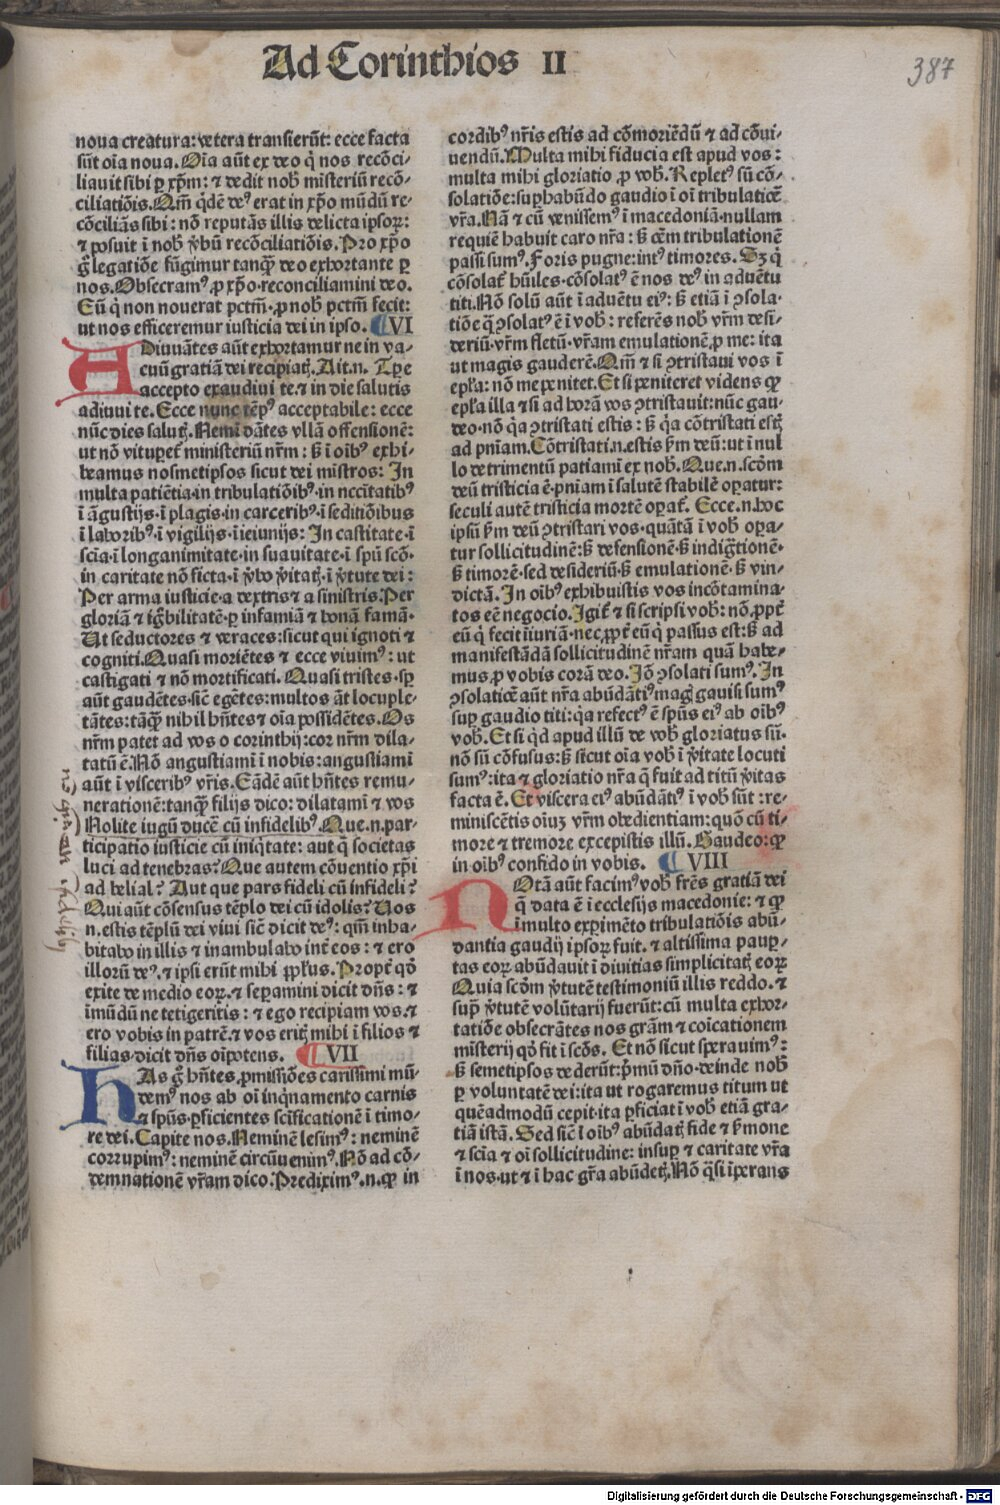 Ad Corinthios II
387
noua creatura: vetera transierūt: ecce facta
sūt oīa noua. Oīa aūt ex deo q̇ nos recōci-
liauit sibi ꝑ xp̄m: ⁊ dedit nob̄ misteriū recō-
ciliatiōis. Qm̄ q̇dē deꝰ erat in xp̄o mūdū re-
cōciliās sibi: nō reputās illis delicta ipsoꝝ:
⁊ posuit ī nob̄ v̄bū recōciliatiōis. Pro xp̄o
g̊ legatiōe fūgimur tanqꝫ deo exhortante ꝑ
nos. Obsecramꝰ ꝓ xp̄o·reconciliamini deo.
Eū q̇ non nouerat pctm̄·ꝓ nob̄ pctm̄ fecit:
ut nos efficeremur iusticia dei in ipso. VI
ADiuuātes aūt exhortamur ne in va-
cuū gratiā dei recipiatꝭ. Ait.n. Tp̄e
accepto exaudiui te.⁊ in die salutis
adiuui te. Ecce nunc tēpꝰ acceptabile: ecce
nūc dies salutꝭ. Nemī dātes vllā offensionē:
ut nō vituperet᷑ ministeriū nr̄m: ꝫ ī oībꝰ exhi-
beamus nosmetipsos sicut dei mīstros: In
multa patiētia·in tribulatiōibꝰ·in nccītatibꝰ
ī āgustijs·ī plagis·in carceribꝰ·ī seditiōibus
ī laboribꝰ·ī vigilijs·ī ieiunijs: In castitate·ī
scīa·ī longanimitate·in suauitate·ī spū scō·
in caritate nō ficta·ī v̄bo v̄itatꝭ·ī v̄tute dei:
Per arma iusticie·a dextris ⁊ a sinistris. Per
gloriā ⁊ ig̊bilitatē·ꝑ infamiā ⁊ bonā famā·
Ut seductores ⁊ veraces: sicut qui ignoti ⁊
cogniti. Quasi moriētes ⁊ ecce viuimꝰ: ut
castigati ⁊ nō mortificati. Quasi tristes·sꝑ
aūt gaudētes: sic̄ egētes: multos āt locuple-
tātes: tāqꝫ nihil hn̄tes ⁊ oīa possidētes. Os
nr̄m patet ad vos o corinthij: cor nr̄m dila-
tatū ē. Nō angustiamī ī nobis: angustiamī
aūt ī visceribꝰ vr̄is. Eādē aūt hn̄tes remu-
nerationē: tanqꝫ filijs dico: dilatamī ⁊ vos
Nolite iugū ducē cū infidelibꝰ. Que.n.par-
ticipatio iusticie cū iniq̇tate: aut q̄ societas
luci ad tenebras? Que autem cōuentio xp̄i
ad belial? Aut que pars fideli cū infideli?
Qui aūt cōsensus tēplo dei cū idolis? Vos
n. estis tēplū dei viui sic̄ dicit deꝰ: qm̄ inha-
bitabo in illis ⁊ inambulabo int̄ eos: ⁊ ero
illorū deꝰ.⁊ ipsi erūt mihi pp̄lus. Propt̄ qd̊
exite de medio eoꝝ.⁊ seꝑamini dicit dn̄s: ⁊
īmūdū ne tetigeritis: ⁊ ego recipiam vos.⁊
ero vobis in patrē.⁊ vos eritꝭ mihi ī filios ⁊
filias·dicit dn̄s oīpotens. VII
HAs g̊ hn̄tes ꝓmissiōes carissimi mū-
demꝰ nos ab oī inq̇namento carnis
⁊ spūs·ꝑficientes scīficationē ī timo-
re dei. Capite nos. Neminē lesimꝰ: neminē
corrupimꝰ: neminē circūuenimꝰ. Nō ad cō-
demnationē vr̄am dico. Prediximꝰ.n.qꝙ in
cordibꝰ nr̄is estis ad cōmoriēdū ⁊ ad cōui-
uendū. Multa mihi fiducia est apud vos:
multa mihi gloriatio ꝓ vob̄. Repletꝰ sū cō-
solatiōe: suꝑhabūdo gaudio ī oī tribulatiōe
vr̄a. Nā ⁊ cū venissemꝰ ī macedoniā·nullam
requiē habuit caro nr̄a: ꝫ oēm tribulationē
passi sumꝰ. Foris pugne: intꝰ timores. Sꝫ q̇
cōsolat᷑ hūiles·cōsolatꝰ ē nos deꝰ in aduētu
titi. Nō solū aūt ī aduētu eiꝰ: ꝫ etiā ī ꝯsola-
tiōe q̄ ꝯsolatꝰ ē ī vob̄: referēs nob̄ vr̄m desi-
deriū·vr̄m fletū·vr̄am emulationē ꝓ me: ita
ut magis gauderē. Qm̄ ⁊ si ꝯtristaui vos ī
epl̄a: nō me penitet. Et si peniteret videns qꝙ
epl̄a illa ⁊ si ad horā vos ꝯtristauit: nūc gau-
deo·nō q̇a ꝯtristati estis: ꝫ q̇a cōtristati estꝭ
ad pn̄iam. Cōtristati.n.estis ẜm deū: ut ī nul
lo detrimentū patiamī ex nob̄. Que.n.scd̄m
deū tristicia ē·pn̄iam ī salutē stabilē oꝑatur:
seculi autē tristicia mortē oꝑat᷑. Ecce.n.hoc
ipsū ẜm deū ꝯtristari vos·quātā ī vob̄ oꝑa-
tur sollicitudinē: ꝫ defensionē·ꝫ indig̊tionē·
ꝫ timorē·sed desideriū·ꝫ emulationē·ꝫ vin-
dictā. In oībꝰ exhibuistis vos incōtamina-
tos eē negocio. Igit᷑ ⁊ si scripsi vob̄: nō ꝓpt̄
eū q̇ fecit iiuriā·nec ꝓpt̄ eū q̇ passus est: ꝫ ad
manifestādā sollicitudinē nr̄am quā habe-
mus ꝓ vobis corā deo. Iō ꝯsolati sumꝰ. In
ꝯsolatiōe aūt nr̄a abūdātiꝰ magꝭ gauisi sumꝰ
suꝑ gaudio titi: q̇a refectꝰ ē spūs eiꝰ ab oībꝰ
vob̄. Et si q̇d apud illū de vob̄ gloriatus sū·
nō sū cōfusus: ꝫ sicut oīa vob̄ ī v̄itate locuti
sumꝰ: ita ⁊ gloriatio nr̄a q̄ fuit ad titū v̄itas
facta ē. Et viscera eiꝰ abūdātiꝰ ī vob̄ sūt: re-
miniscētis oīuꝫ vr̄m obedientiam: quō cū ti-
more ⁊ tremore excepistis illū. Gaudeo: qꝙ
in oībꝰ confido in vobis. VIII
NOtā aūt facimꝰ vob̄ fr̄es gratiā dei
q̄ data ē ī ecclesijs macedonie: ⁊ qꝙ
ī multo exꝑimēto tribulatiōis abū-
dantia gaudij ipsoꝝ fuit.⁊ altissima pauꝑ-
tas eoꝝ abūdauit ī diuitias simplicitatꝭ eoꝝ
Quia scd̄m v̄tutē testimoniū illis reddo.⁊
supꝑ v̄tutē volūtarij fuerūt: cū multa exhor-
tatiōe obsecrātes nos gr̄am ⁊ coīcationem
mīsterij qd̊ fit ī scōs. Et nō sicut sperauimꝰ:
ꝫ semetipsos dederūt: p̄mū dn̄o·deinde nob̄
ꝑ voluntatē dei: ita ut rogaremus titum ut
quēadmodū cepit·ita ꝑficiat ī vob̄ etiā gra-
tiā istā. Sed sic̄ ī oībꝰ abūdatꝭ fide ⁊ ẜmone
⁊ scīa ⁊ oī sollicitudine: insuꝑ ⁊ caritate vr̄a
ī nos·ut ⁊ ī hac gr̄a abūdetꝭ. Nō q̇si īꝑans
Digitalisierung gefördert durch die Deutsche Forschungsgemeinschaft - DFG